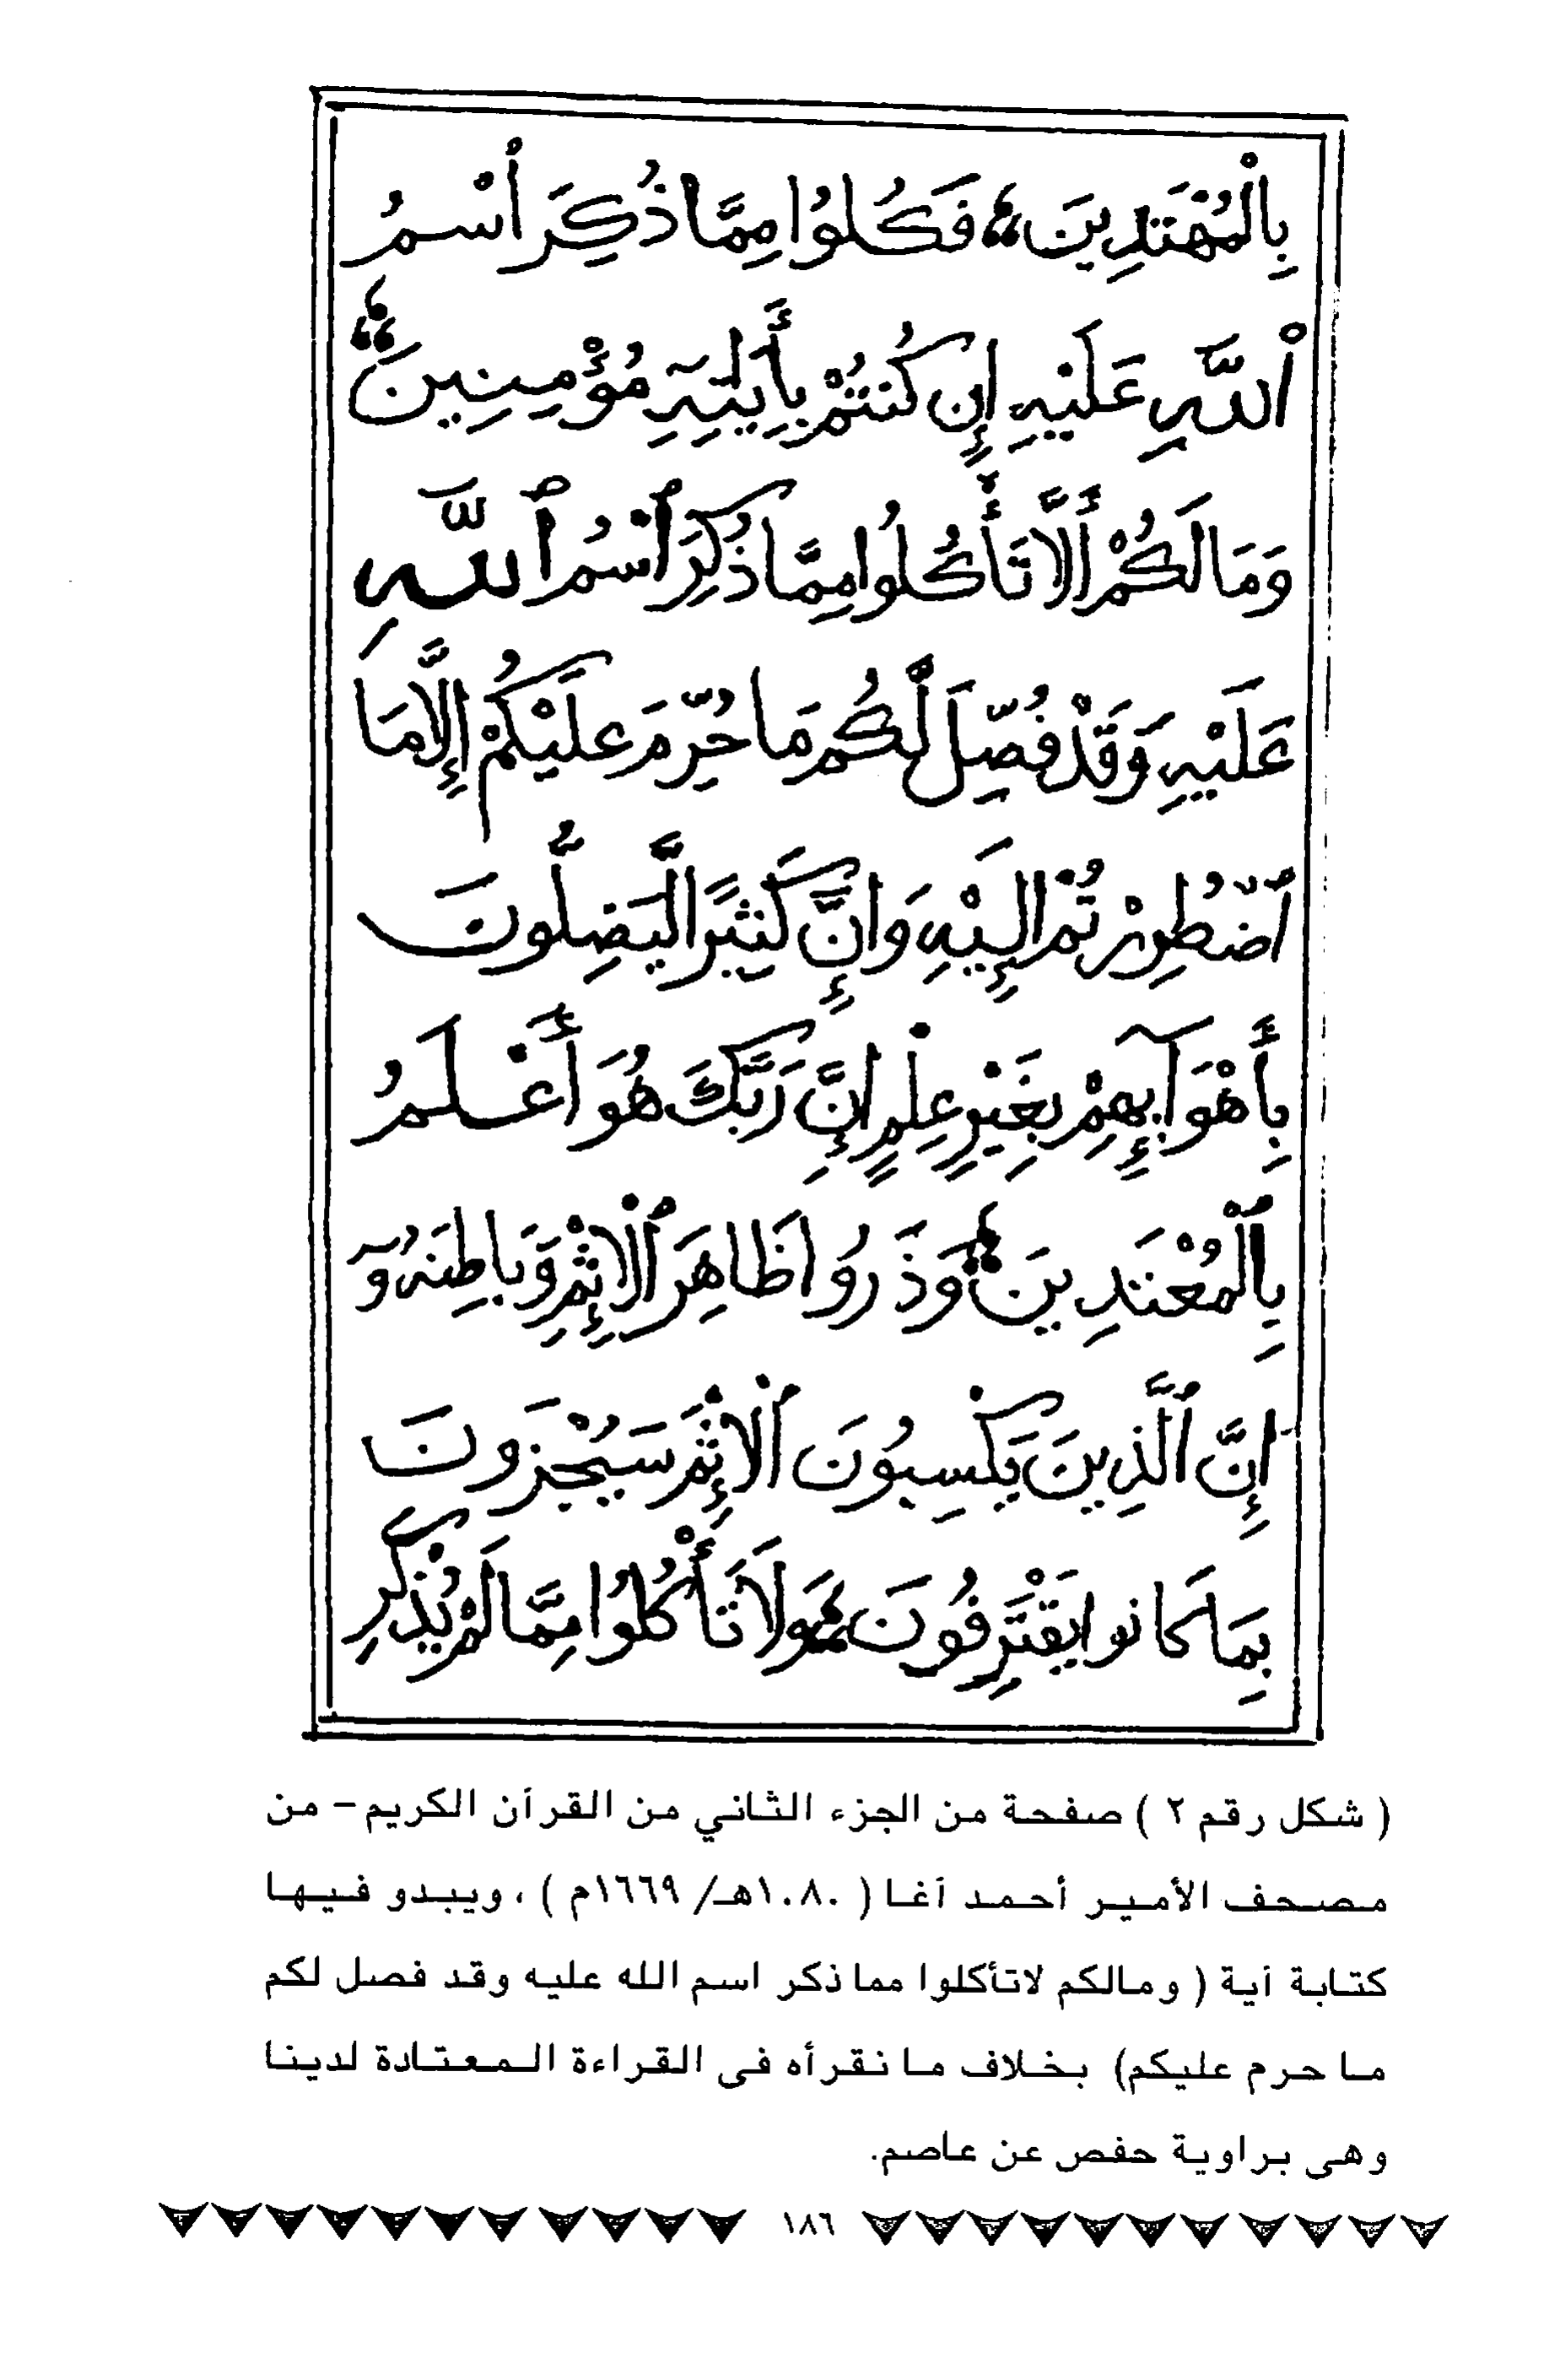 بِالْمُهْتَدِينَ فَكُلُوا مِمَّا ذُكِرَ أسْمُ
اللَّهِ عَلَيْهِ إِن كُنتُمْ بِأَيَٰتِهِ مُؤْمِنِينَ
وَمَا لَكُمْ أَلَّا تَأْكُلُوا مِمَّا ذُكِرَ ٱسْمُ ٱللَّهِ
عَلَيْهِ وَقَدْ فُصِّلَ لَكُم مَا حُرِّمَ عَلَيْكُمْ إِلَّا مَا
ٱضْطُرِرْتُمْ إِلَيْهِ وَإِنَّ كَثِيرًا لَّيَضِلُّونَ
بِأَهْوَآئِهِمْ بِغَيْرِ عِلْمٍ إِنَّ رَبَّكَ هُوَ أَعْلَمُ
بِٱلْمُعْتَدِينَ وَذَرُوا ظَاهِرَ ٱلْإِثْمِ وَبَاطِنَهُ وَٓ
إِنَّ ٱلَّذِينَ يَكْسِبُونَ ٱلْإِثْمَ سَيُجْزَوْنَ
بِمَا كَانُوا يَقْتَرِفُونَ وَلَا تَأْكُلُوا مِمَّا لَمْ يُذْكَرِ
( شكل رقم ٢ ) صفحة من الجزء الثاني من القرآن الكريم - من
مصحف الأمير أحمد آغا ( ١٠٨٠هـ/ ١٦٦٩م ) ، ويبدو فيها
كتابة آية ( ومالكم لاتأكلوا مما ذكر اسم الله عليه وقد فصل لكم
ما حرم عليكم) بخلاف ما نقرأه فى القراءة المعتادة لدينا
وهى براوية حفص عن عاصم.
١٨٦